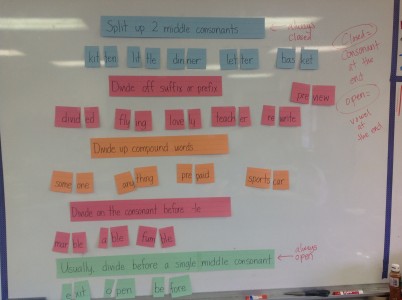 Split up 2 middle consonants
always closed
kit ten lit tle din ner let ter bas ket
closed= consonant at the end
Divide off suffix or prefix
pre view
divid ed fly ing love ly teach er re write
open= vowel at the end
Divide up compound words
some one any thing pre paid sports car
Divide on the consonant before -le
a ble
Usually, divide before a single middle consonant
always open
o pen be fore